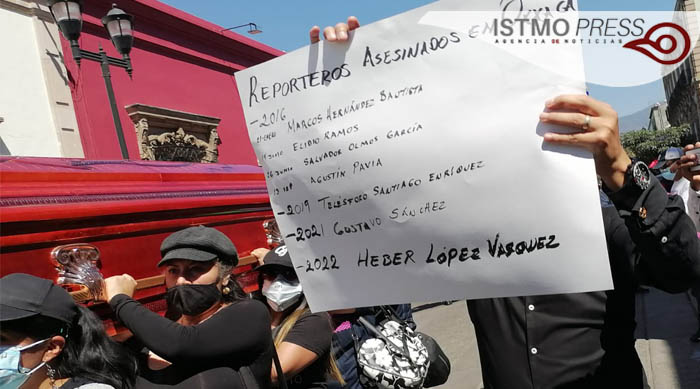 ISTMO PRESS
AGENCIA DE NOTICIAS
REPORTEROS ASESINADOS EN OAXACA
-2016
MARCOS HERNÁNDEZ BAUTISTA
ELIDIO RAMOS
SALVADOR OLMOS GARCÍA
AGUSTÍN PAVIA
-2019 TELÉSFORO SANTIAGO ENRÍQUEZ
-2021 GUSTAVO SÁNCHEZ
-2022 HEBER LÓPEZ VÁSQUEZ